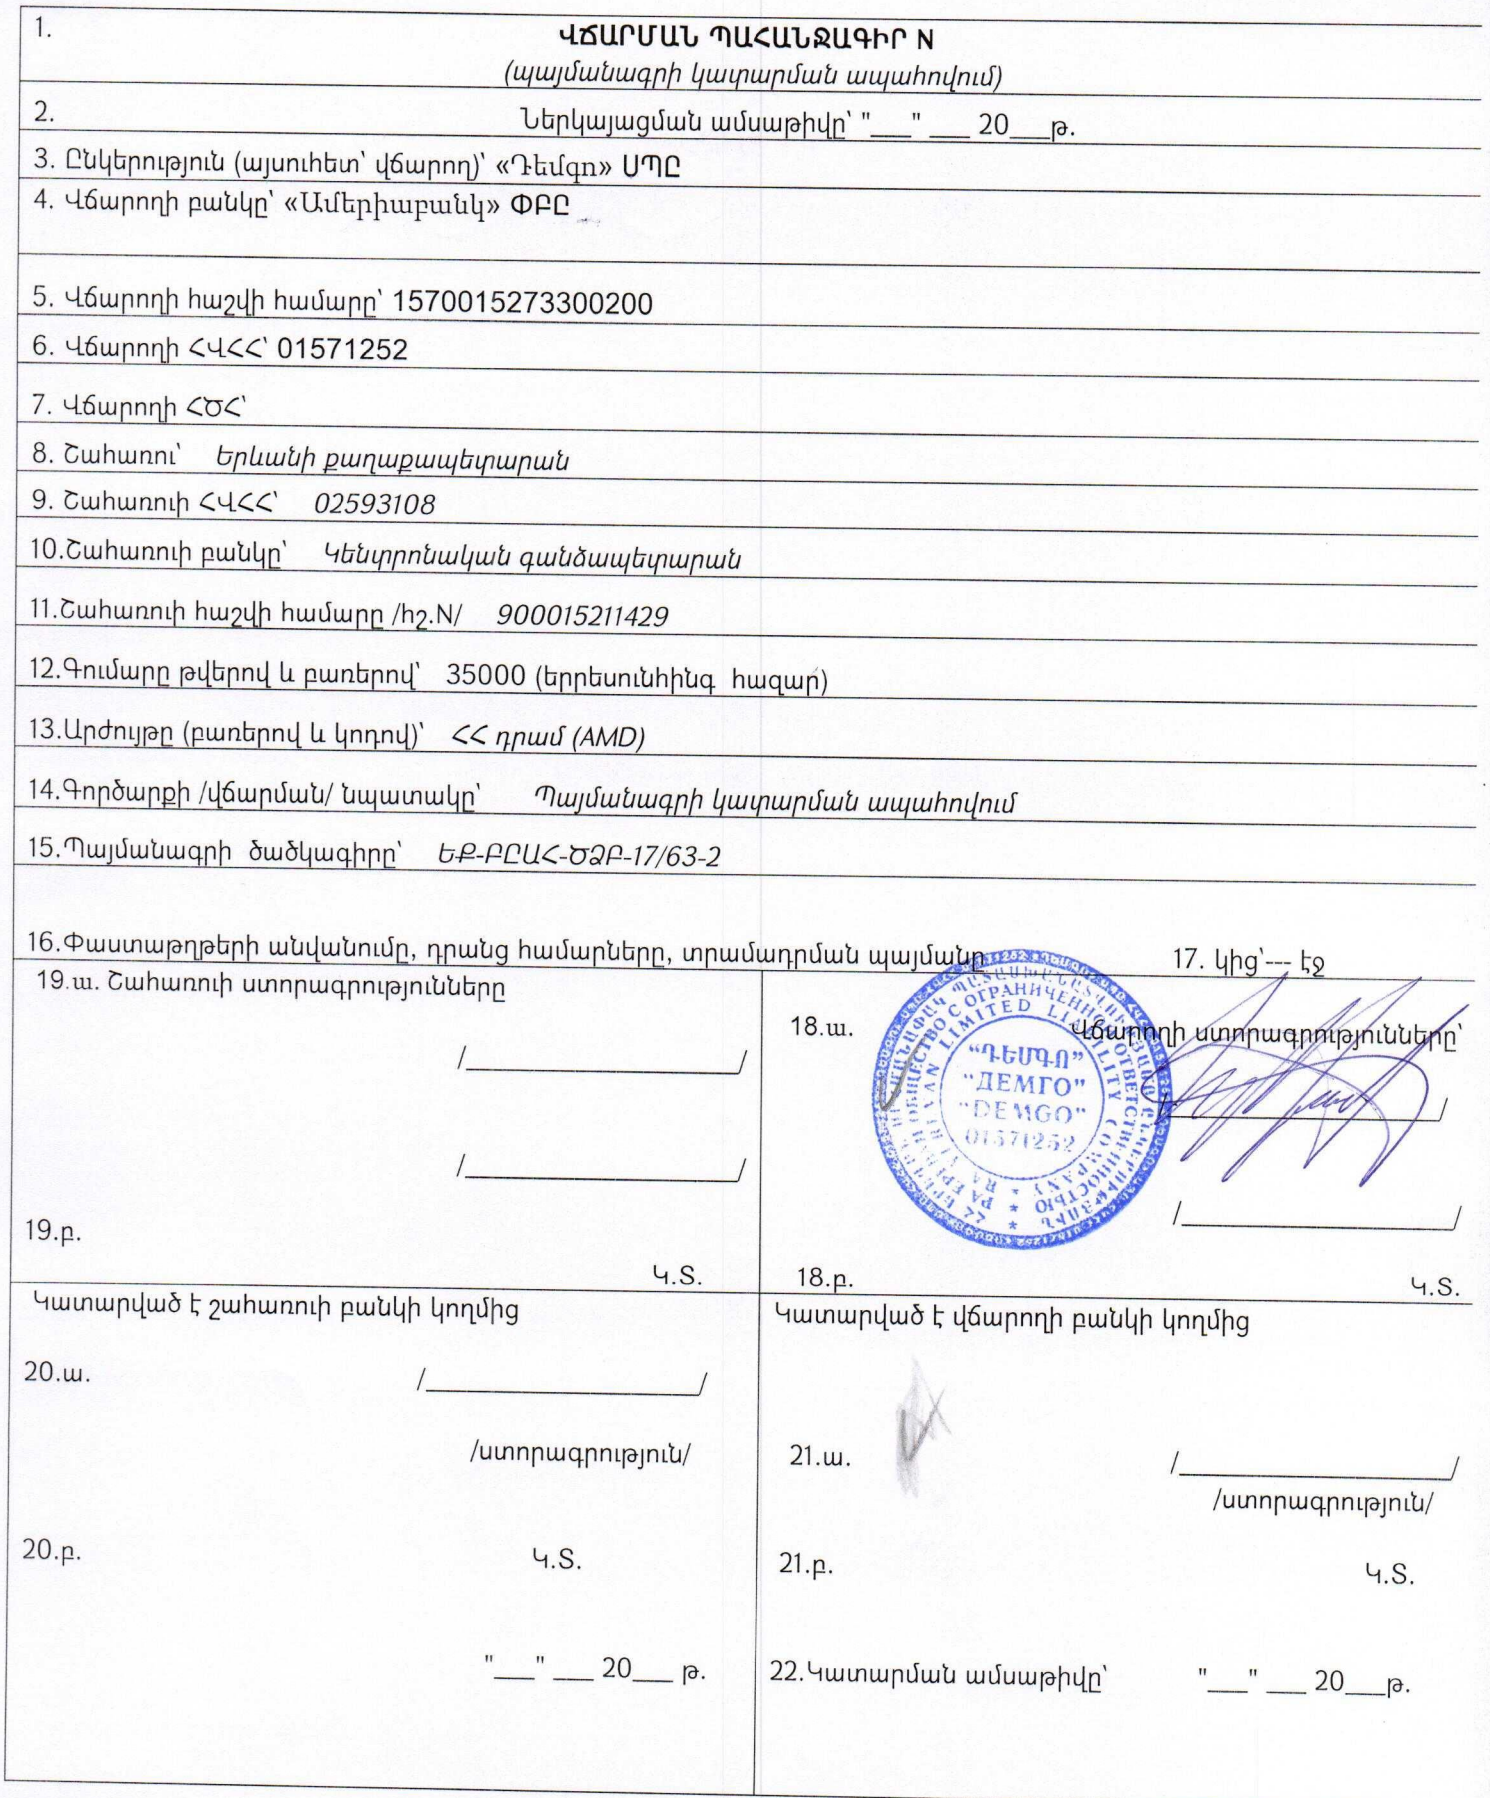 1.
ՎՃԱՐՄԱՆ ՊԱՀԱՆՋԱԳԻՐ N
(պայմանագրի կատարման ապահովում)
2. Ներկայացման ամսաթիվը՝ "___" ___ 20___թ.
3. Ընկերություն (այսուհետ՝ վճարող)՝ «Դեմգո» ՍՊԸ
4. Վճարողի բանկը՝ «Ամերիաբանկ» ՓԲԸ
5. Վճարողի հաշվի համարը՝ 1570015273300200
6. Վճարողի ՀՎՀՀ՝ 01571252
7. Վճարողի ՀԾՀ՝
8. Շահառու՝ Երևանի քաղաքապետարան
9. Շահառուի ՀՎՀՀ՝ 02593108
10.Շահառուի բանկը՝ Կենտրոնական գանձապետարան
11.Շահառուի հաշվի համարը /հշ.N/ 900015211429
12.Գումարը թվերով և բառերով՝ 35000 (երրեսունհինգ հազար)
13.Արժույթը (բառերով և կոդով)՝ ՀՀ դրամ (AMD)
14.Գործարքի /վճարման/ նպատակը՝ Պայմանագրի կատարման ապահովում
15.Պայմանագրի ծածկագիրը՝ ԵՔ-ԲԸԱՀ-ԾՁԲ-17/63-2
16.Փաստաթղթերի անվանումը, դրանց համարները, տրամադրման պայմանը 17. կից՝--- էջ
19.ա. Շահառուի ստորագրությունները
/____________________/
/____________________/
19.բ.
Կ.Տ.
18.ա. Վճարողի ստորագրությունները՝
/____________________/
/____________________/
"ԴԵՄԳՈ"
"ДЕМГО"
"DEMGO"
01571252
ОБЩЕСТВО С ОГРАНИЧЕННОЙ ОТВЕТСТВЕННОСТЬЮ
LIMITED LIABILITY COMPANY
18.բ. Կ.Տ.
Կատարված է շահառուի բանկի կողմից
20.ա. /____________________/
/ստորագրություն/
20.բ. Կ.Տ.
"___" ___ 20___ թ.
Կատարված է վճարողի բանկի կողմից
21.ա. /____________________/
/ստորագրություն/
21.բ. Կ.Տ.
22.Կատարման ամսաթիվը՝ "___" ___ 20___թ.